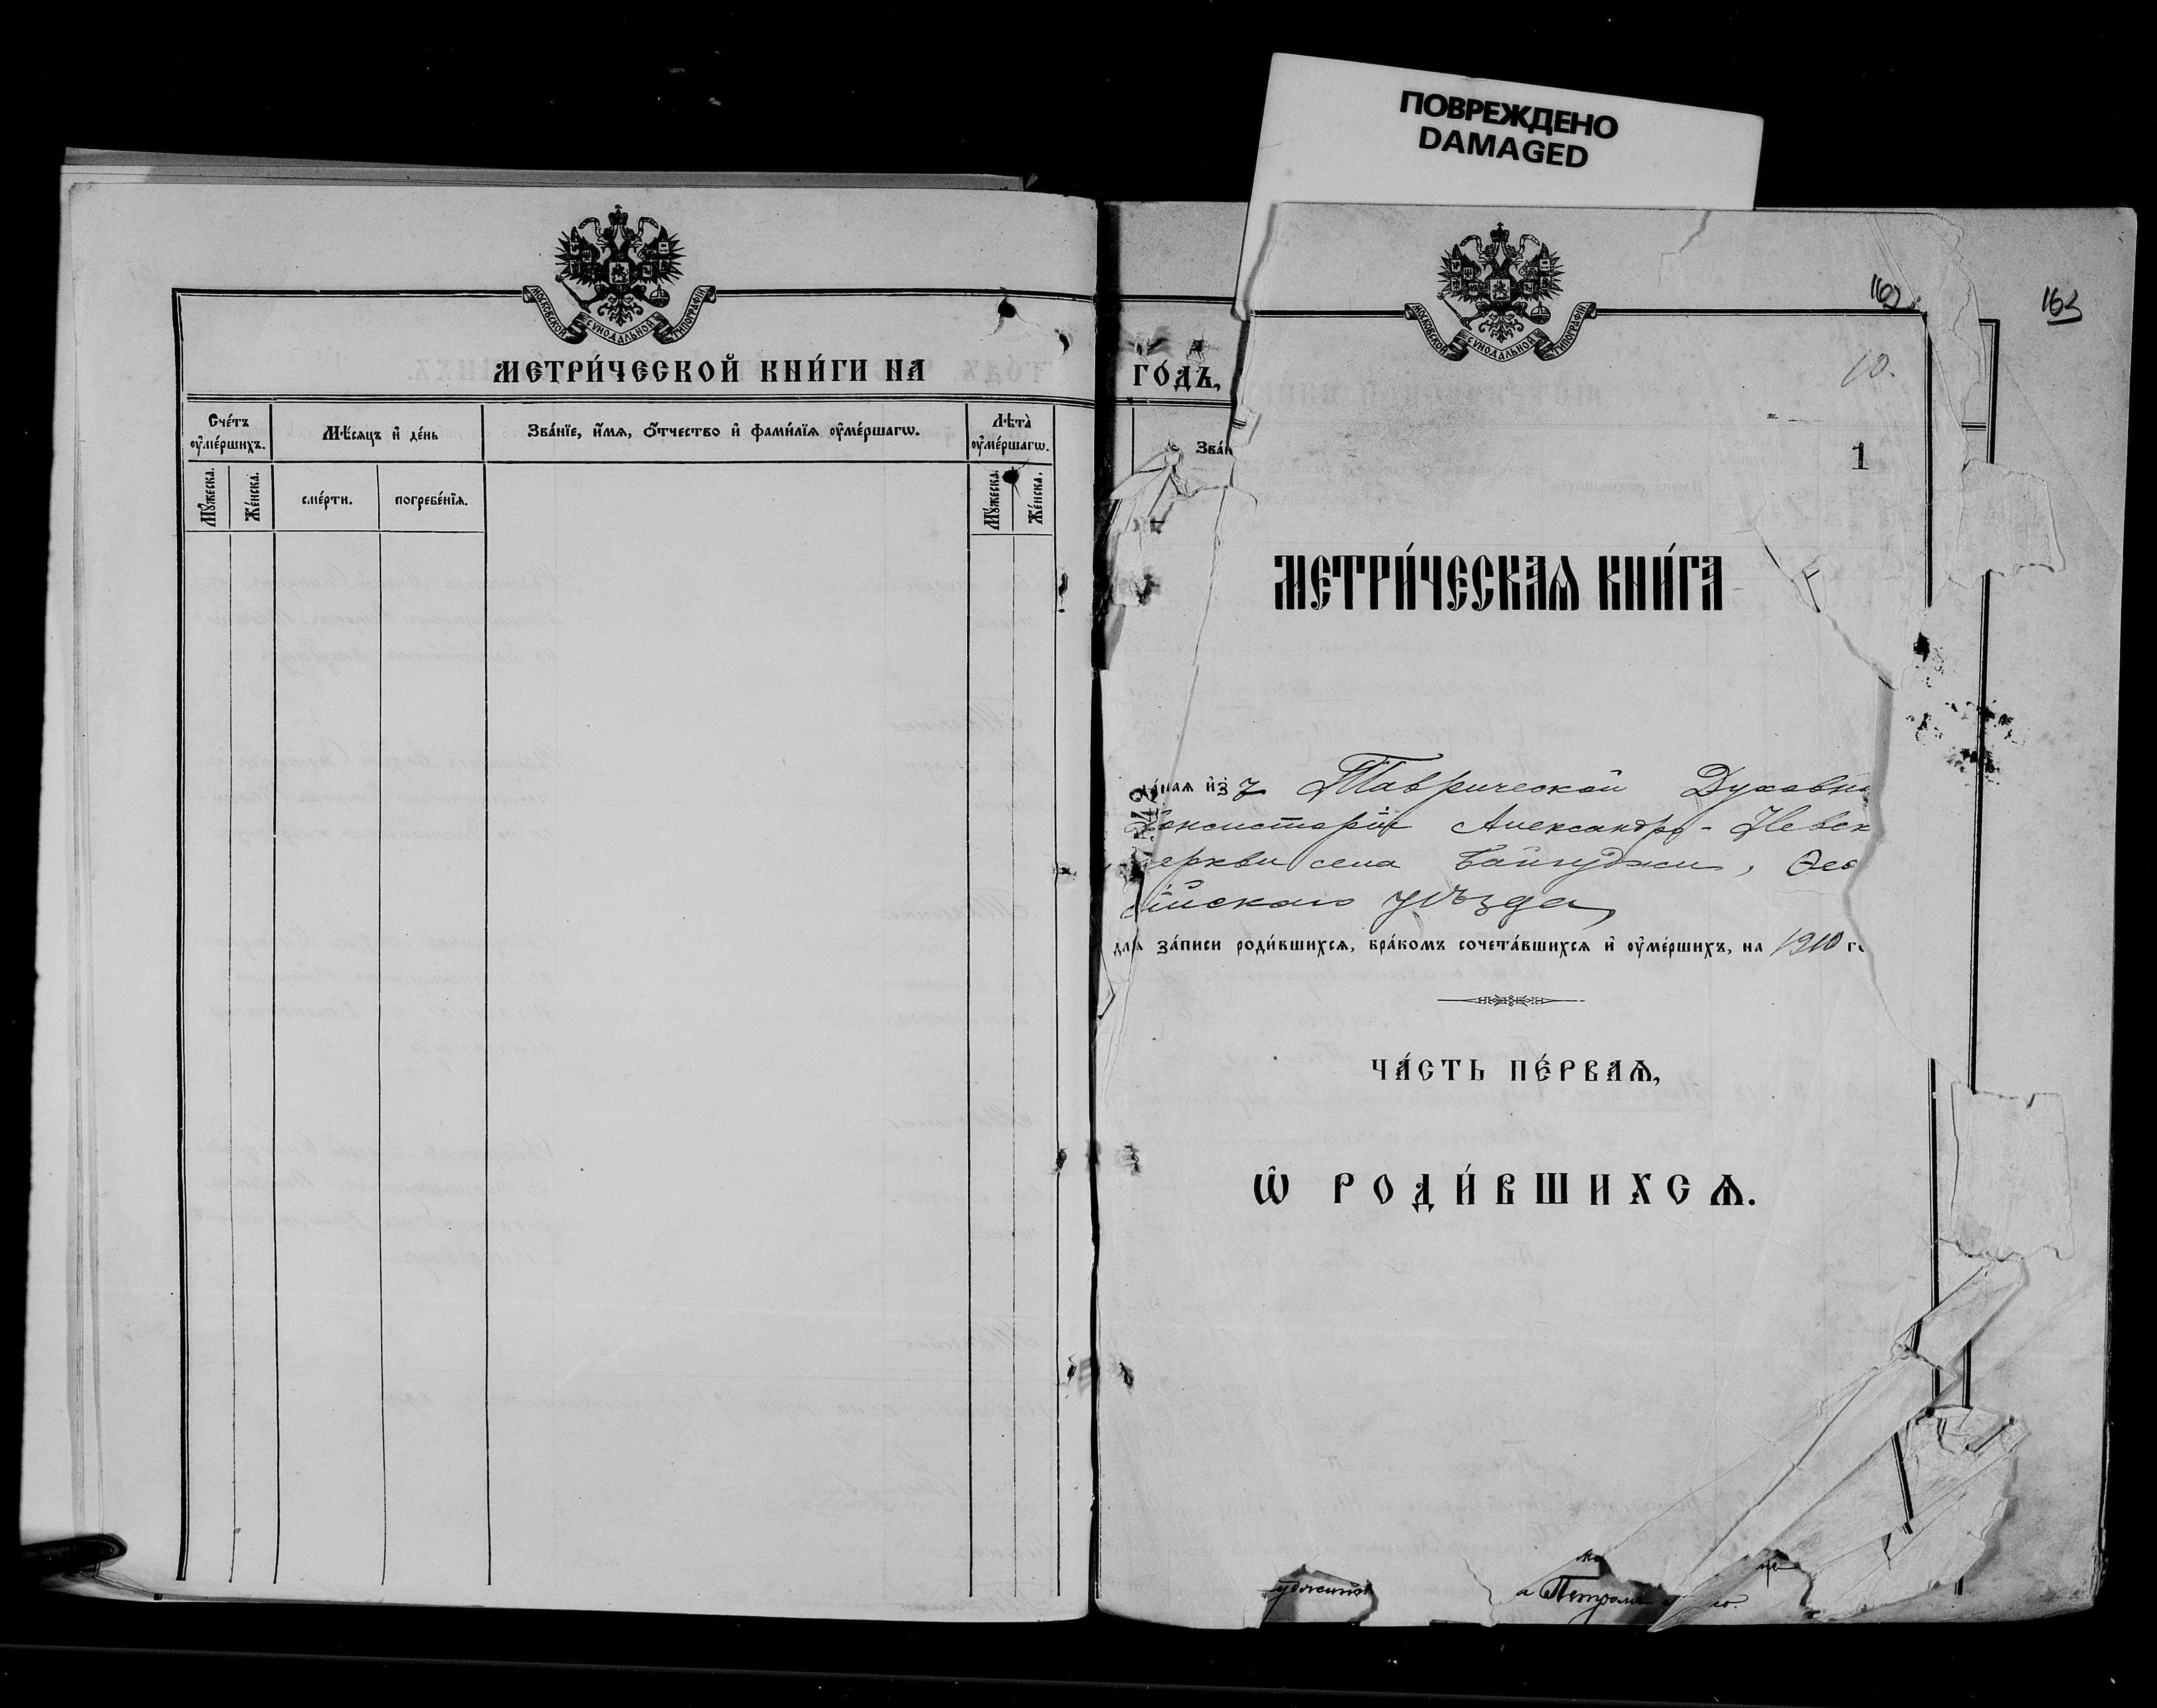 ПОВРЕЖДЕНО
DAMAGED
МОСКОВСКОЙ СѴНОДАЛЬНОЙ ТИПОГРАФІИ
МЕТРИ́ЧЕСКОЙ КНИ́ГИ НА
Счéтъ ᲂу҆мéршихъ.
Мѣ́сяцъ и҆ дéнь
Звáнїе, и҆́мѧ, ѻ҆́тчество и҆ фами́лїѧ ᲂу҆мéршагѡ.
Лѣ́та ᲂу҆мéршагѡ.
Мꙋ́жеска.
Жéнска.
смéрти.
погребéнїѧ.
Мꙋ́жеска.
Жéнска.
ГО́ДЪ,
Звáн
МОСКОВСКОЙ СѴНОДАЛЬНОЙ ТИПОГРАФІИ
162
163
10.
1
МЕТРИ́ЧЕСКАѦ КНИ́ГА
дáннаѧ и҆з Таврической Духовн
Консисторіи Александро-Невск
церкви села Байгуджи, Ѳео
сійскаго уѣзда,
длѧ зáписи роди́вшихсѧ, брáкомъ сочетáвшихсѧ и҆ ᲂу҆мéршихъ, на 1910 го
ЧÁСТЬ ПÉРВАѦ,
Ѡ҆ РОДИ́ВШИХСѦ.
а Петром